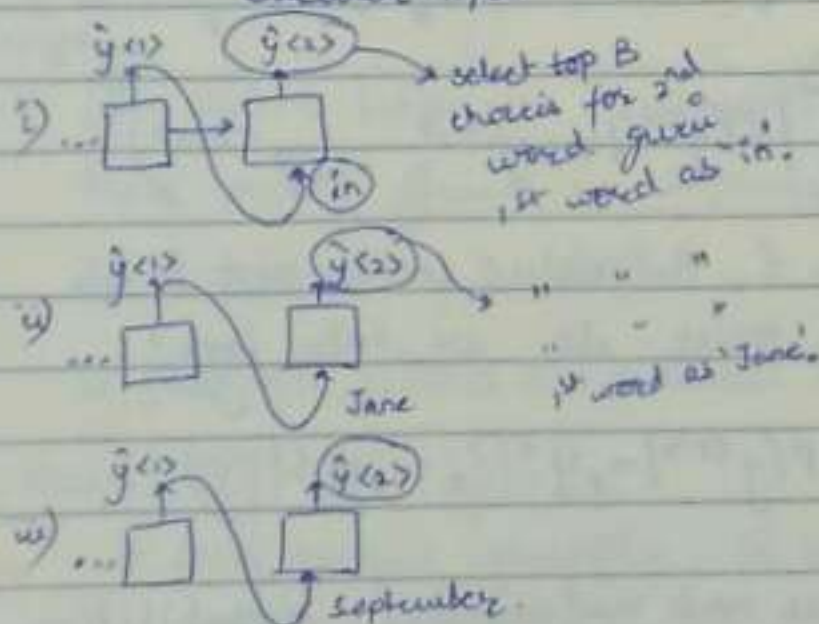 ŷ<1> ŷ<2>
select top B
choices for 2nd
word given
1st word as 'in'.
i) ...
in
ŷ<1> ŷ<2>
" " "
ii) ...
" " "
1st word as 'Jane'.
Jane
ŷ<1> ŷ<2>
iii) ...
September.